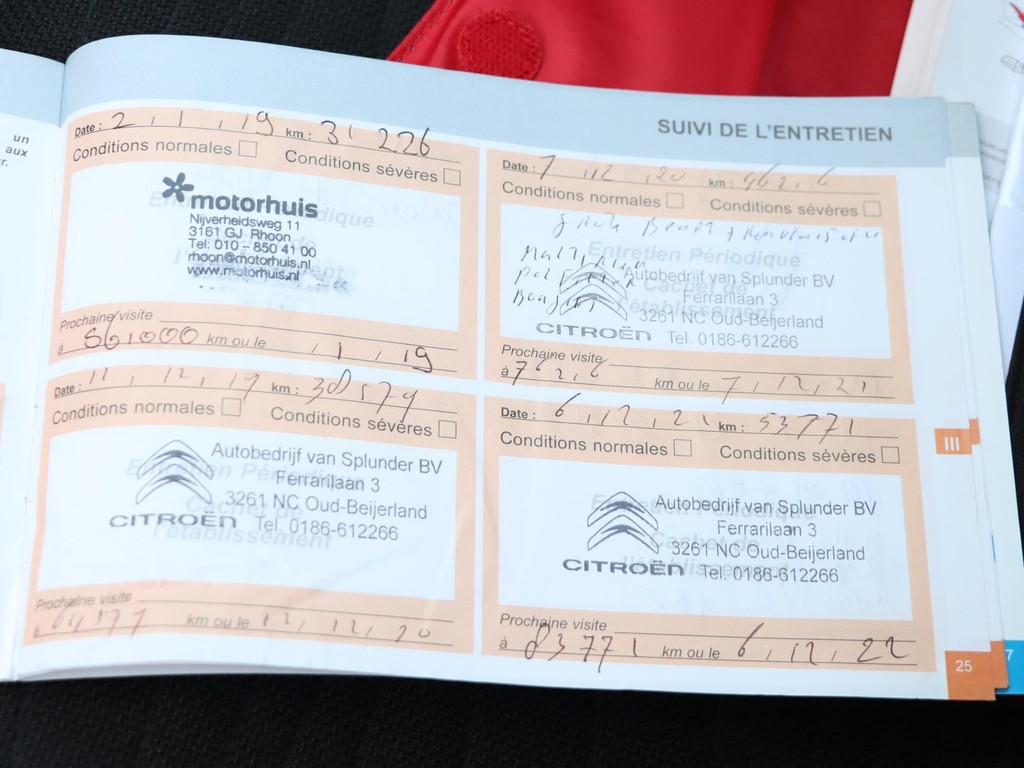 un
aux
r.
SUIVI DE L'ENTRETIEN
Date : 2 / 1 / 19 km : 31 226
Conditions normales Conditions sévères
motorhuis
Nijverheidsweg 11
3161 GJ Rhoon
Tel: 010 - 850 41 00
rhoon@motorhuis.nl
www.motorhuis.nl
Prochaine visite
à 56.000 km ou le / 1 / 19
Date : 7 / 12 / 20 km :
Conditions normales Conditions sévères
Entretien Périodique
Cachet de
l'établissement
Autobedrijf van Splunder BV
Ferrarilaan 3
3261 NC Oud-Beijerland
CITROËN Tel. 0186-612266
Prochaine visite
à km ou le 7 / 12 / 21
Date : / 12 / km : 38579
Conditions normales Conditions sévères
Autobedrijf van Splunder BV
Ferrarilaan 3
3261 NC Oud-Beijerland
CITROËN Tel. 0186-612266
Prochaine visite
à km ou le 12 / 12 / 20
Date : 6 / 12 / 21 km : 53771
Conditions normales Conditions sévères
Autobedrijf van Splunder BV
Ferrarilaan 3
3261 NC Oud-Beijerland
CITROËN Tel. 0186-612266
Prochaine visite
à 83771 km ou le 6 / 12 / 22
III
25
7